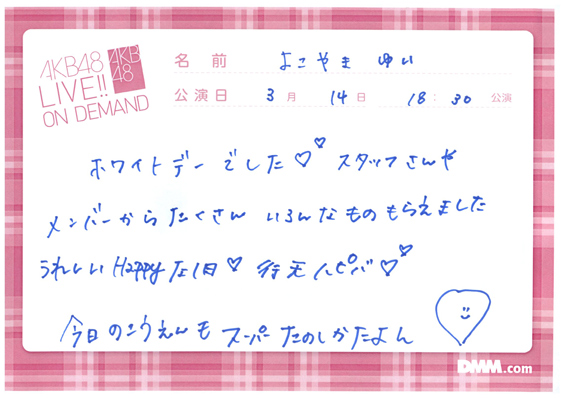 AKB48
LIVE!!
ON DEMAND
AKB
48
名前 よこやま ゆい
公演日 3月 14日 18:30 公演
ホワイトデーでした♡♡ スタッフさんや
メンバーからたくさん いろんなものもらえました
うれしい Happyな1日♡ ♡♡
今日のこうえんも スーパーたのしかたよん
DMM.com